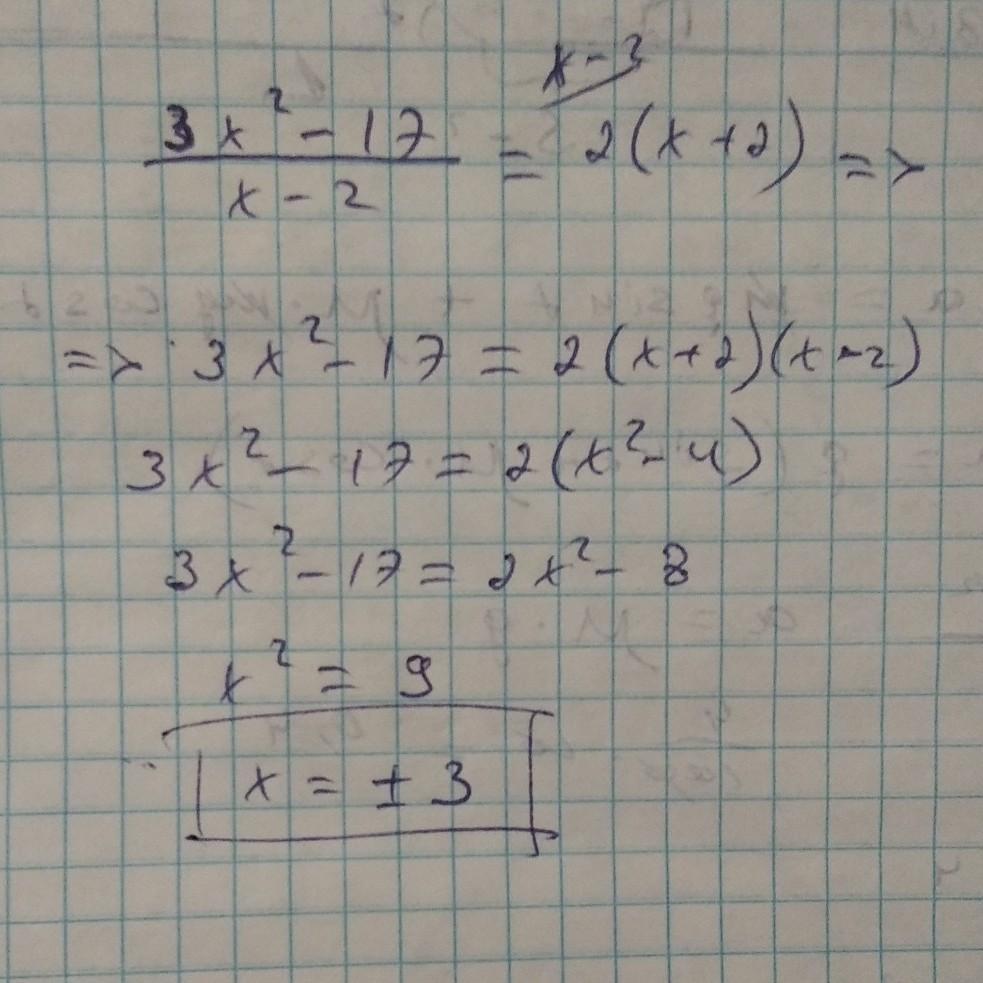 x - 3
3x² - 17 / x - 2 = 2(x + 2) =>
=> 3x² - 17 = 2(x + 2)(x - 2)
3x² - 17 = 2(x² - 4)
3x² - 17 = 2x² - 8
x² = 9
x = ± 3